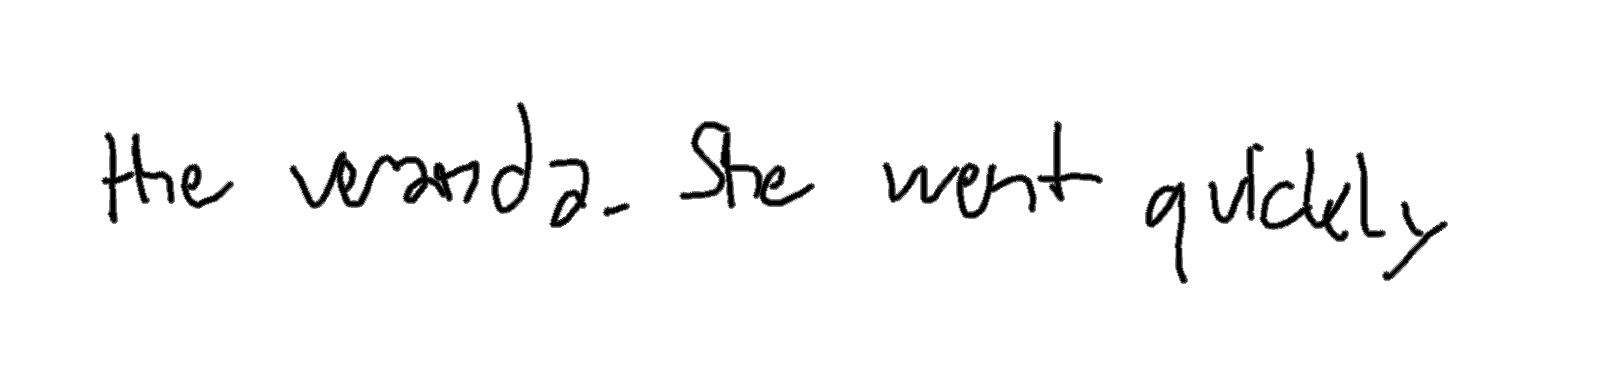 the veranda. She went quickly